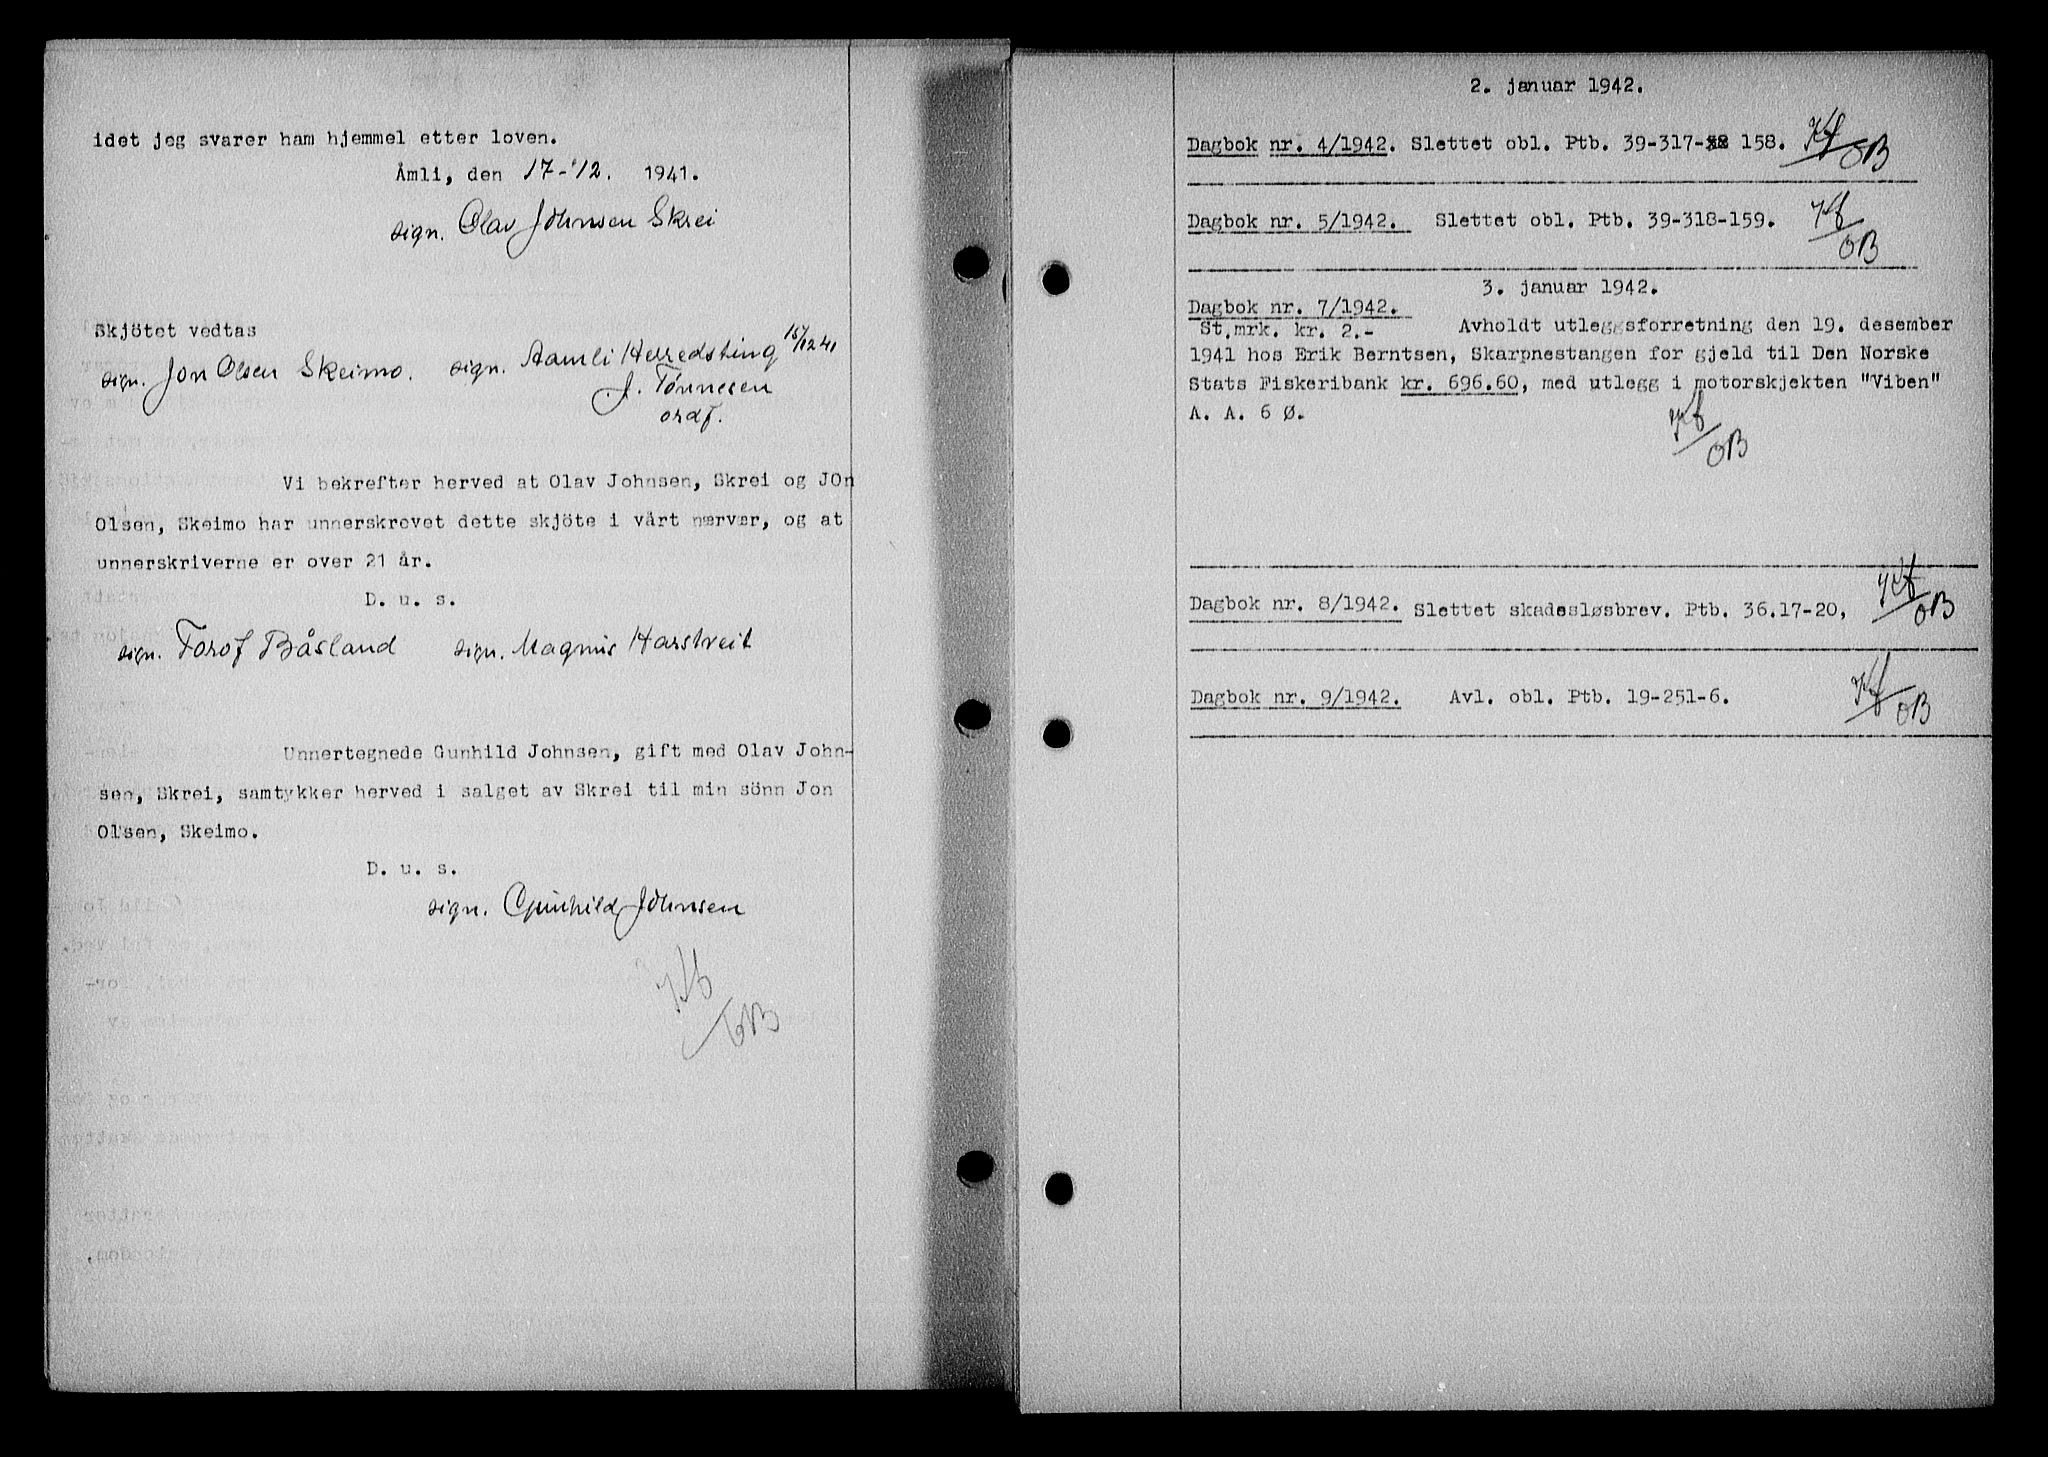 idet jeg svarer ham hjemmel etter loven.
Åmli, den 17-12. 1941.
sign. Olav Johnsen Skrei
Skjötet vedtas
sign. Jon Olsen Skeimo. sign. Aamli Herredsting 15/12 41
J. Tönnesen
ordf.
Vi bekrefter herved at Olav Johnsen, Skrei og JOn
Olsen, Skeimo har unnerskrevet dette skjöte i vårt nærvær, og at
unnerskriverne er over 21 år.
D. u. s.
sign. Torof Båsland sign. Magnus Harstveit
Unnertegnede Gunhild Johnsen, gift med Olav John-
sen, Skrei, samtykker herved i salget av Skrei til min sönn Jon
Olsen, Skeimo.
D. u. s.
sign. Gunhild Johnsen
OB
2. januar 1942.
Dagbok nr. 4/1942. Slettet obl. Ptb. 39-317- 158.
OB
Dagbok nr. 5/1942. Slettet obl. Ptb. 39-318-159.
OB
3. januar 1942.
Dagbok nr. 7/1942.
St.mrk. kr. 2.- Avholdt utleggsforretning den 19. desember
1941 hos Erik Berntsen, Skarpnestangen for gjeld til Den Norske
Stats Fiskeribank kr. 696.60, med utlegg i motorskjekten "Viben"
A. A. 6 Ø.
OB
Dagbok nr. 8/1942. Slettet skadesløsbrev. Ptb. 36.17-20,
OB
Dagbok nr. 9/1942. Avl. obl. Ptb. 19-251-6.
OB